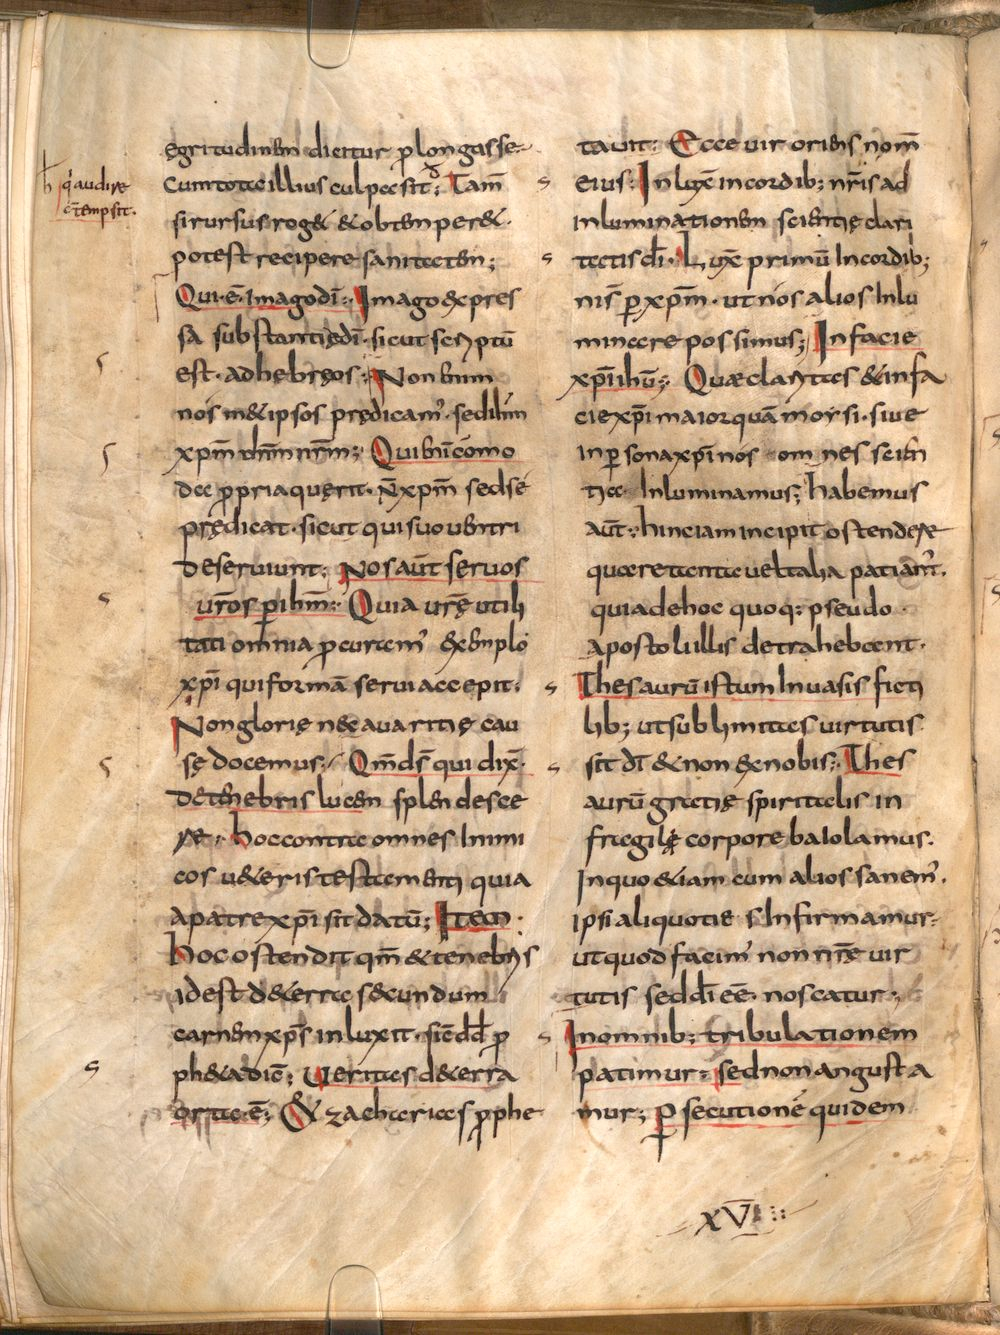 egritudinem dicitur prolongasse·
Cum tota illius culpa sit; Tam̄
si rursus roget & obtemperet·
potest recipere sanitatem;
Qui·ē·imago dī· Imago expres
sa substantię dī· sicut scriptū
est· ad hebręos; Non enim
nos metipsos prędicam᾽· sed ihm̄
xpm̄ dnm̄ nrm̄; Qui enī como
da propria quęrit· N̄ xpm̄ sed se
prędicat· sicut qui suo uentri
deseruiunt; Nos aūt seruos
urōs p ihm̄· Quia urę̄ utili
tati omnia procuram᾽ exemplo
xpī qui formā serui accepit;
Non glorię nec auaritię cau
sę docemus; Qm̄ ds̄ qui dix̄·
de tenebris lucem splendesce
re· hoc contra omnes inimi
cos ueteris testamenti quia
a patre xpī sit datū; Item·
hoc ostendit qm̄ & tenebris
id est de terra secundum
carnem xps̄ inluxit· sic̄ dd̄ pro
pheta dic̄; Ueritas de terra
orta·ē; Et zacharias prophe
h̄ q᾽ audire
c̄tempsit·
tauit· Ecce uir oriens nom̄
eius· In lucē in cordib; nrīs ad
inluminationem scientię clari
tatis dī· Lucē primū in cordib;
nīs p xpm̄· ut nos alios inlu
minare possimus; In facie
xpī ihū; Quæ claritas & in fa
cie xpī maior quā moysi· siue
in persona xpī nos omnes scien
tia inluminamus; habemus
aūt· hinc iam incipit ostendere
quare tanta uel talia patiam᾽·
quia de hoc quoq; pseudo
apostoli illis detrahebant·
Thesaurū istum in uasis ficti
lib; ut sublimitas uirtutis
sit dī & non ex nobis; Thes
aurū gratię spiritalis in
fragilę corpore baiolamus·
In quo etiam cum alios sanem᾽·
ipsi aliquoties infirmamur·
ut quod facim᾽ non nrę̄ uir
tutis sed dī eē· noscatur;
In omnib; tribulationem
patimur· sed non angusta
mur; Persecutionē quidem
XVI